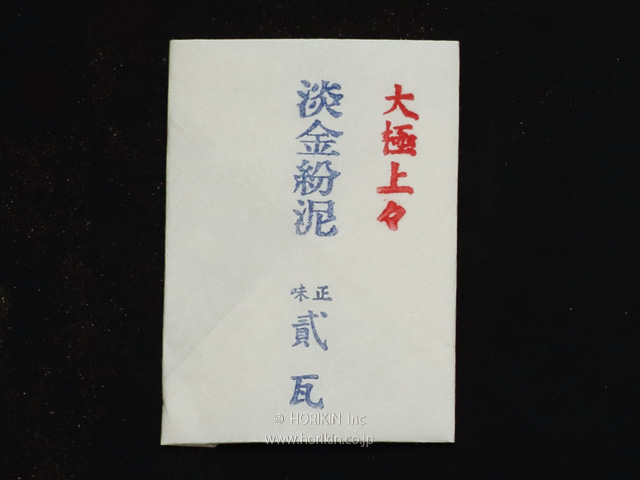 大極上々
淡金紛泥
正味
貳瓦
© HORIKIN Inc
www.horikin.co.jp